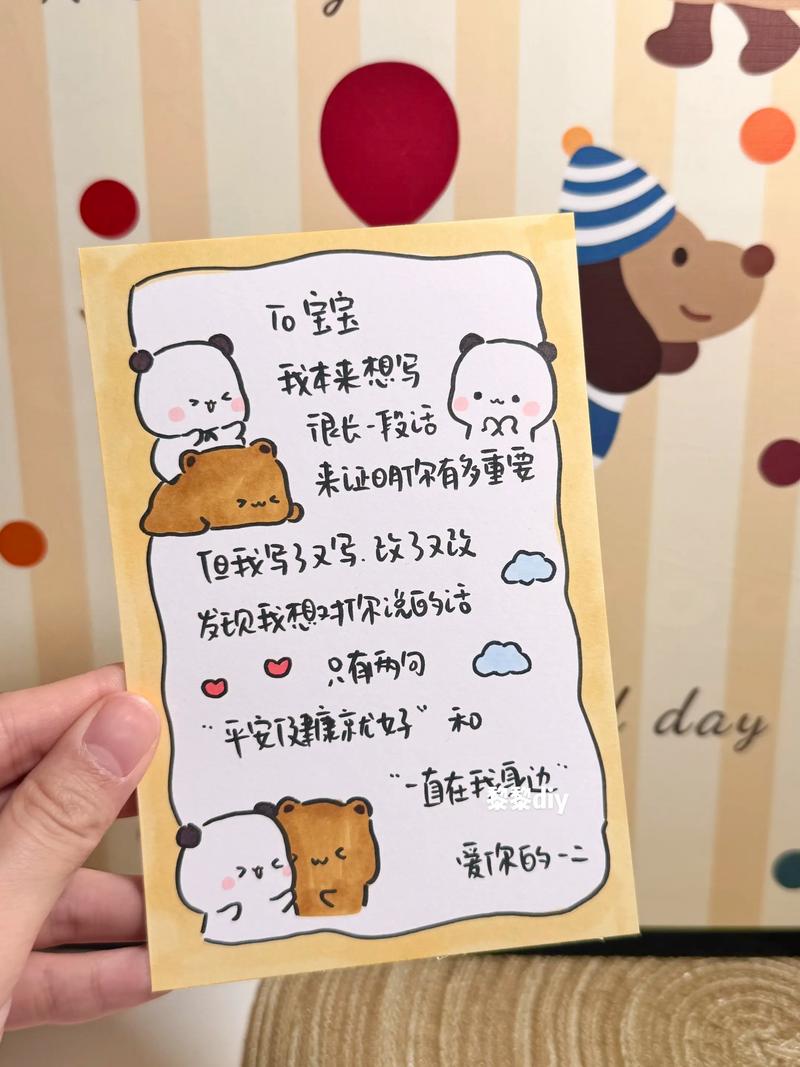 To 宝宝
我本来想写
很长一段话
来证明你有多重要
但我写了又写.改了又改
发现我想对你说的话
只有两句
"平安健康就好" 和
"一直在我身边"
黎黎diy
爱你的一二
d day